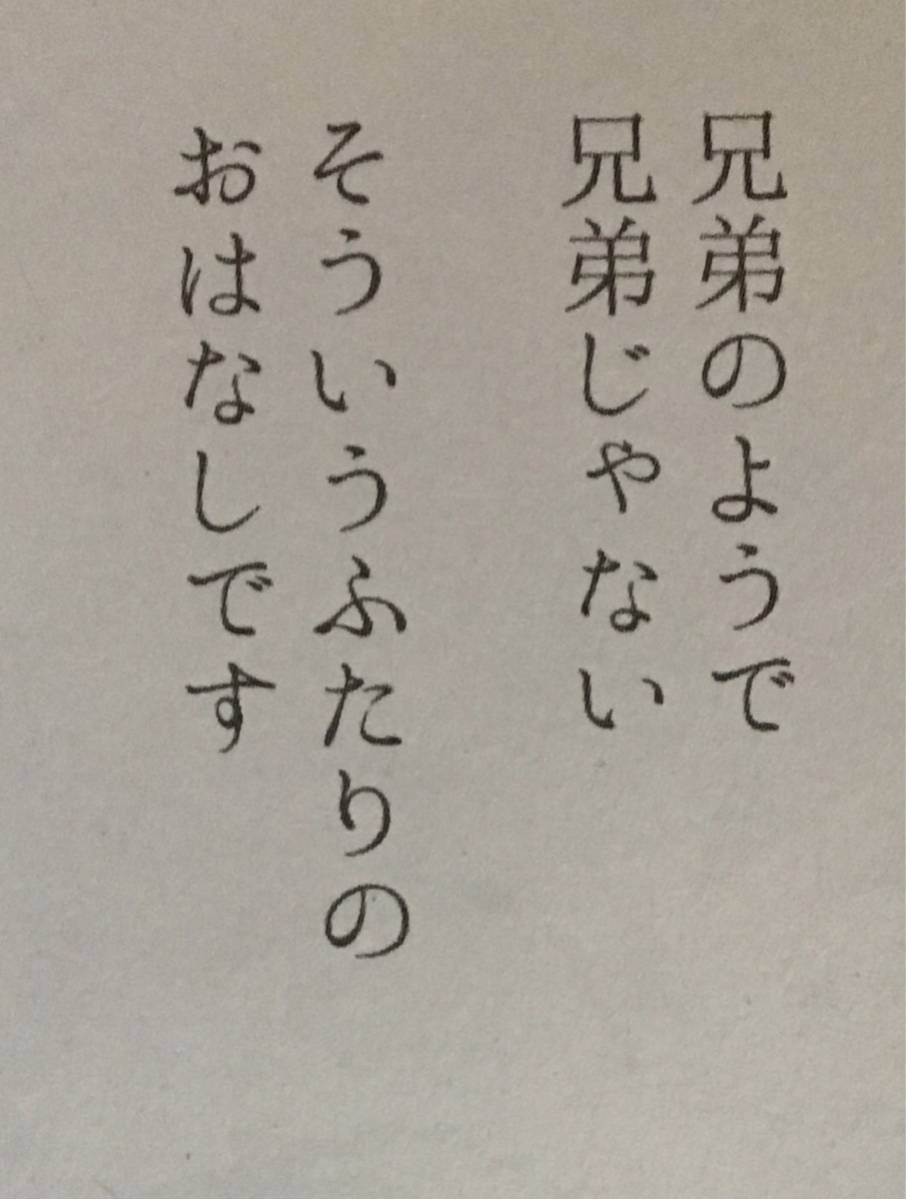 兄弟のようで
兄弟じゃない
そういうふたりの
おはなしです